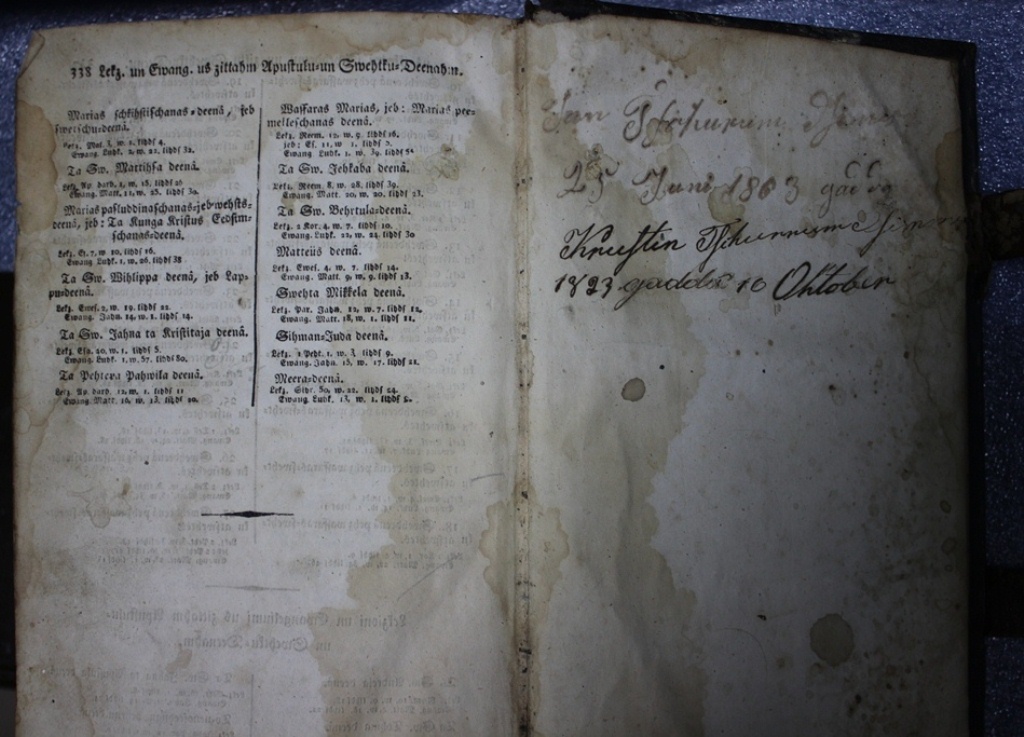 338 Lekz. un Ewang. us zittahm Apustulu-un Swehtku-Deenahm.
Marias schkihstischanas-deenâ, jeb
swetschu-deenâ.
Lekz. Mal. 3, w. 1. lihds 4.
Ewang. Luhk. 2, w. 22. lihds 32.
Ta Sw. Mattihsa deenâ.
Lekz. Ap. darb. 1, w. 15. lihds 26
Ewang. Matt. 11, w. 25. lihds 30.
Marias pasluddinaschanas-jeb wehsts-
deenâ, jeb: Ta Kunga Kristus Eedsim-
schanas-deenâ.
Lekz. Es. 7, w. 10. lihds 16.
Ewang. Luhk. 1. w. 26. lihds 38
Ta Sw. Wihlippa deenâ, jeb Lap-
pu-deenâ.
Lekz. Ewes. 2, w. 19. lihds 22.
Ewang. Jahn. 14, w. 1. lihds 14.
Ta Sw. Jahna ta Kristitaja deenâ.
Lekz. Esa. 40, w. 1. lihds 5.
Ewang. Luhk. 1. w. 57. lihds 80.
Ta Pehtera Pahwila deenâ.
Lekz. Ap. darb. 12, w. 1. lihds 11
Ewang. Matt. 16, w. 13. lihds 20.
Wassaras Marias, jeb: Marias pee-
melleschanas deenâ.
Lekz. Reem. 12, w. 9. lihds 16.
jeb: Es. 11, w. 1. lihds 5.
Ewang. Luhk. 1. w. 39. lihds
Ta Sw. Jehkaba deenâ.
Lekz. Reem. 8, w. 28. lihds 39.
Ewang. Matt. 20, w. 20. lihds 23.
Ta Sw. Behrtula-deenâ.
Lekz. 2 Kor. 4, w. 7. lihds 10.
Ewang. Luhk. 22, w. 24. lihds 30
Matteüs deenâ.
Lekz. Ewes. 4. w. 7. lihds 14.
Ewang. Matt. 9, w. 9. lihds 13.
Swehta Mikkela deenâ.
Lekz. Par. Jahn. 12, w. 7. lihds 12.
Ewang. Matt. 18, w. 1. lihds 11.
Sihmana-Juda deenâ.
Lekz. 1 Peht. 1. w. 3. lihds 9.
Ewang. Jahn. 15, w. 17. lihds 21.
Meera-deenâ.
Ewang. Luhk. 13, w. 1. lihds
25 Juni 1863 gadda
Krustin
1823 gadda 10 Oktober